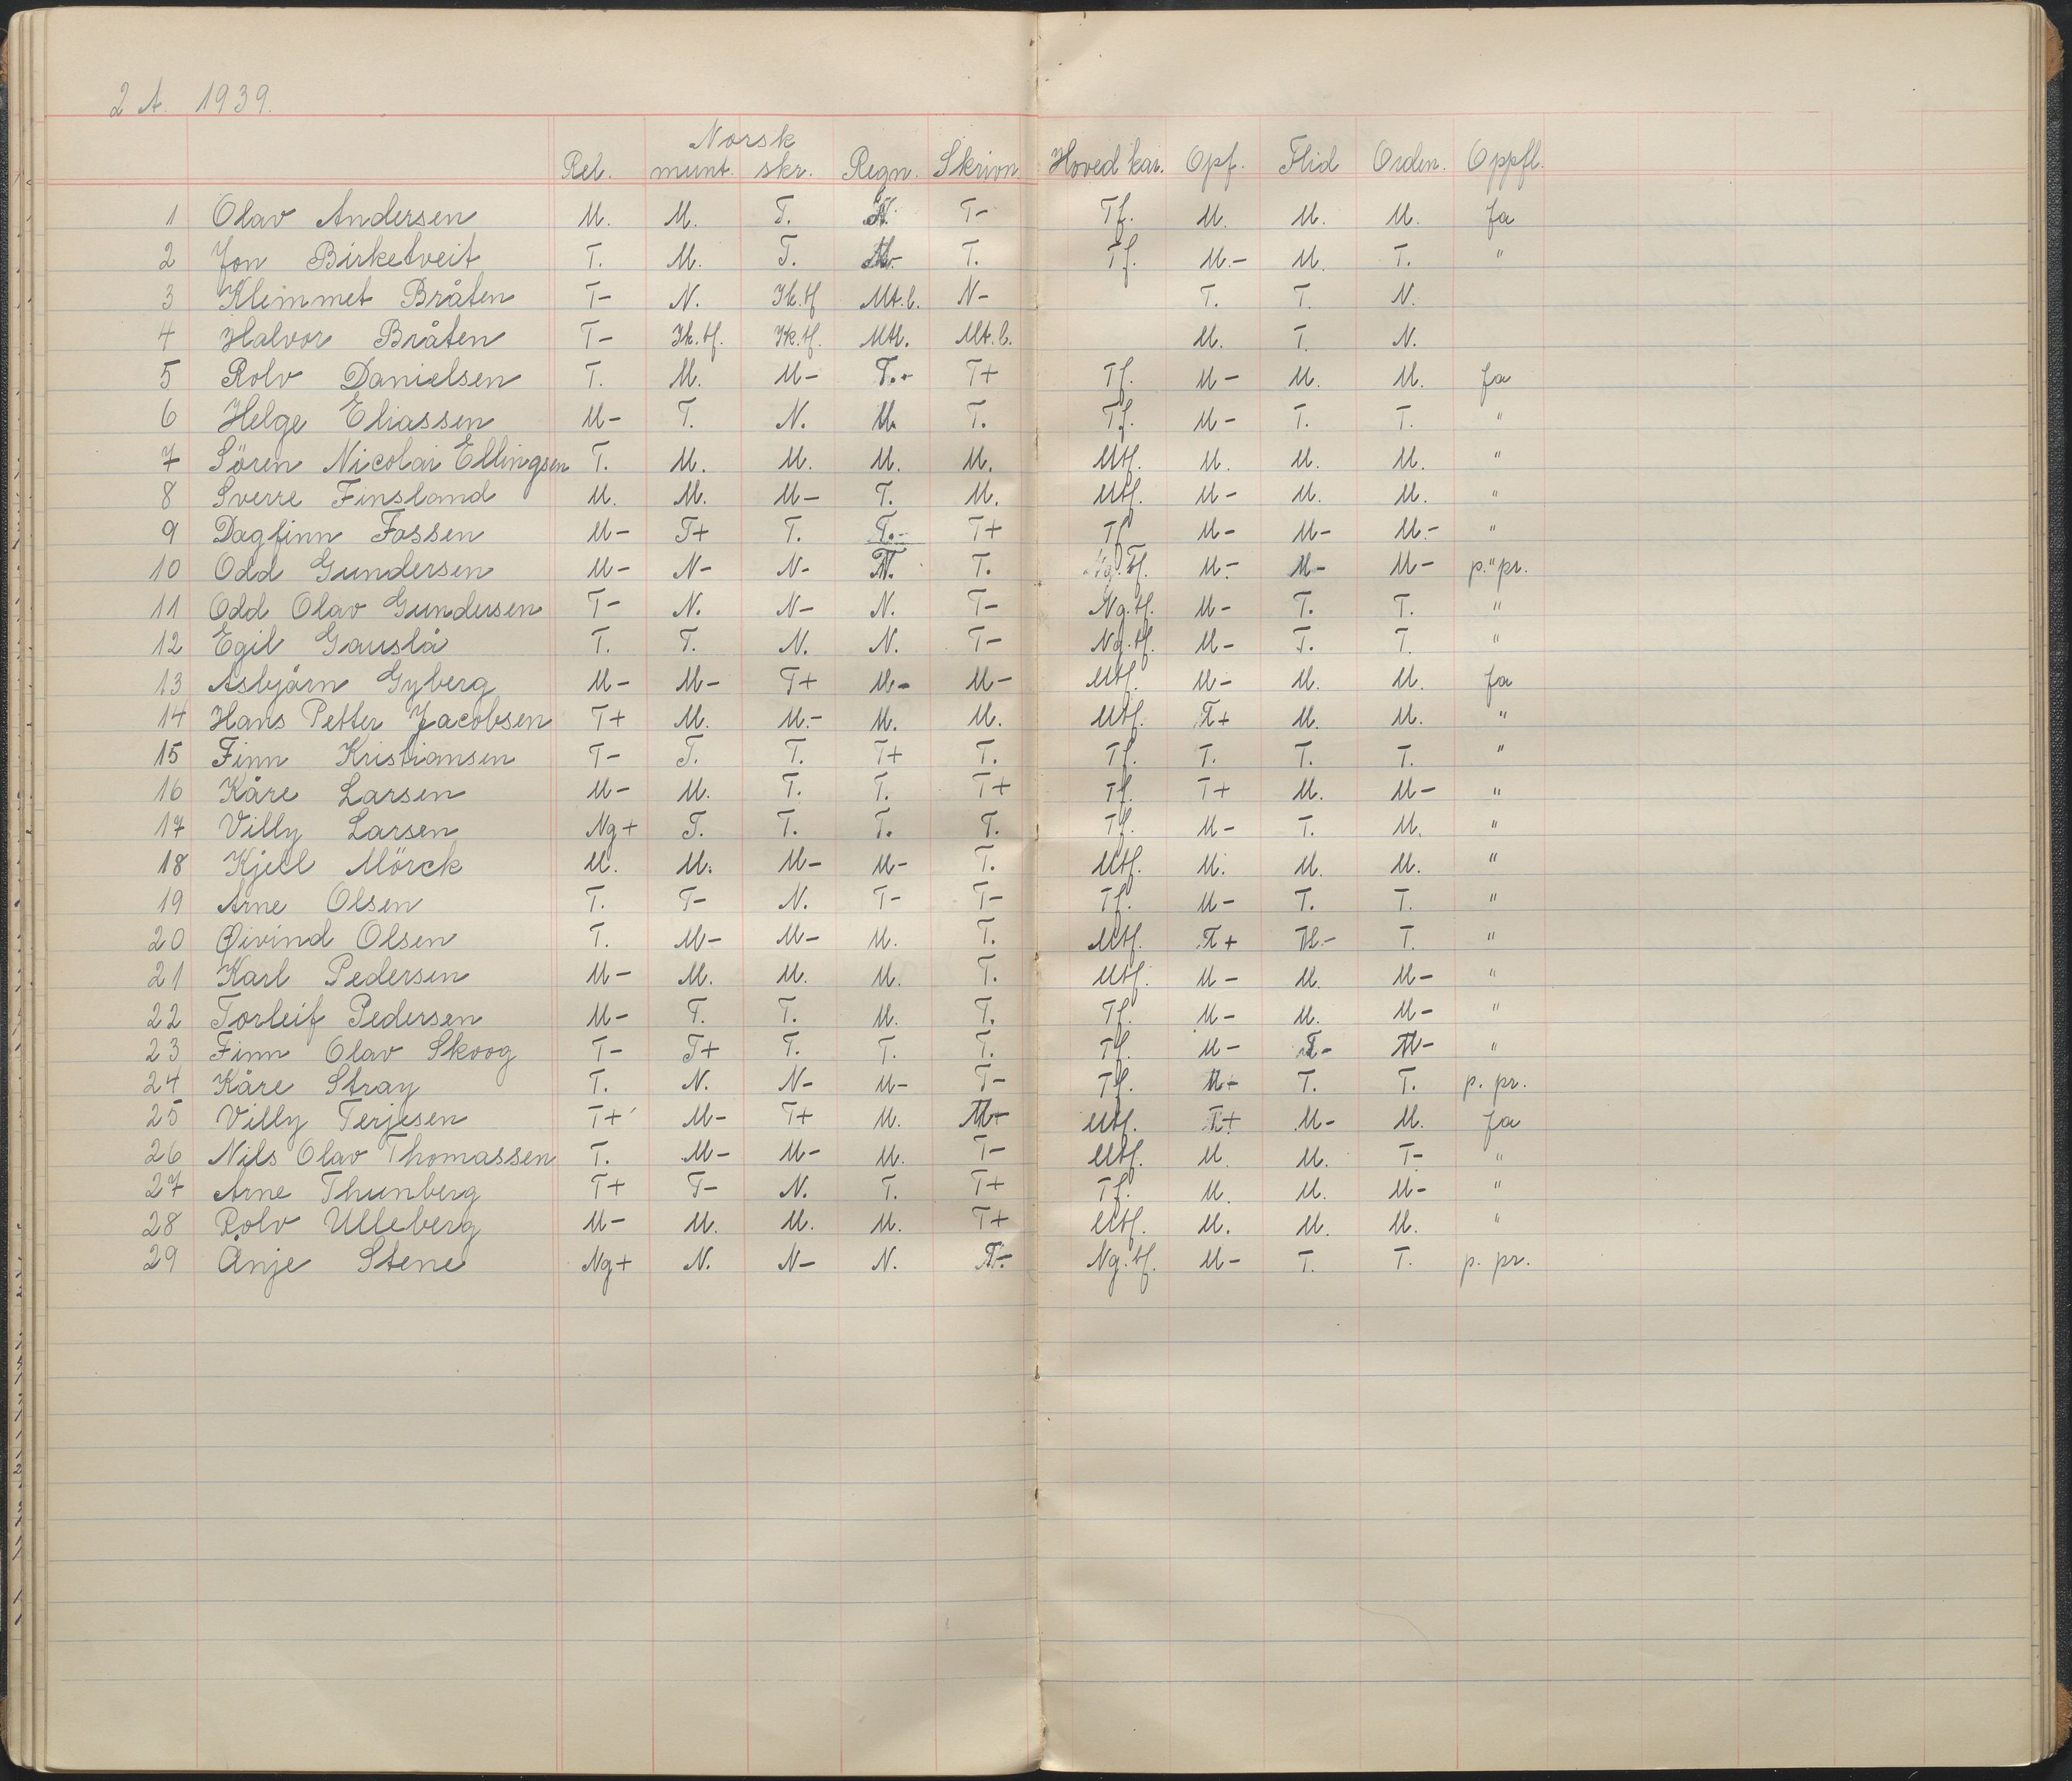 2 A. 1939.
Norsk
Rel. munt. skr. Regn. Skrivn. Hovedkar. Opf. Flid Orden. Oppfl.
1 Olav Andersen M. M. T. T- Tf. M. M. M. Ja
2 Jon Birketveit T. M. T. T. Tf. M.- M. T. "
3 Klemmet Bråten T- N. Ik.tf Mt.b. N- T. T. N.
4 Halvor Bråten T- Ik.tf. Ik.tf. Mtl. Mt.b. M. T. N.
5 Rolv Danielsen T. M. M- T.+ T+ Tf. M- M. M. Ja
6 Helge Eliassen M- T. N. M. T. Tf. M- T. T. "
7 Sören Nicolai Ellingsen T. M. M. M. M. Mtf. M. M. M. "
8 Sverre Finsland M. M. M- T. M. Mtf. M- M. M. "
9 Dagfinn Fossen M- T+ T. T.- T+ Tf M- M- M- "
10 Odd Gundersen M- N- N- N. T. Ng.tf. M- M- M- p."pr.
11 Odd Olav Gundersen T- N. N- N. T- Ng.tf. M- T. T. "
12 Egil Gauslå T. T. N. N. T- Ng.tf. M- T. T. "
13 Asbjörn Gyberg M- M- T+ M- M- Mtf. M- M. M. Ja
14 Hans Petter Jacobsen T+ M. M.- M. M. Mtf. T+ M. M. "
15 Finn Kristiansen T- T. T. T+ T. Tf. T. T. T. "
16 Kåre Larsen M- M. T. T. T+ Tf. T+ M. M- "
17 Villy Larsen Ng+ T. T. T. T. Tf. M- T. M. "
18 Kjell Mörck M. M. M- M- T. Mtf. M. M. M. "
19 Arne Olsen T. T- N. T- T- Tf. M- T. T. "
20 Øivind Olsen T. M- M- M. T. Mtf. T+ M- T. "
21 Karl Pedersen M- M. M. M. T. Mtf. M- M. M- "
22 Torleif Pedersen M- T. T. M. T. Tf. M- M. M- "
23 Finn Olav Skoog T- T+ T. T. T. Tf. M- T- M- "
24 Kåre Stray T. N. N- M- T- Tf. M- T. T. p. pr.
25 Villy Terjesen T+ M- T+ M. Mtf. T+ M- M. Ja
26 Nils Olav Thomassen T. M- M- M. T- Mtf. M. M. T- "
27 Arne Thunberg T+ T- N. T. T+ Tf. M. M. M- "
28 Rolv Ulleberg M- M. M. M. T+ Mtf. M. M. M. "
29 Ånje Stene Ng+ N. N- N. T- Ng.tf. M- T. T. p. pr.